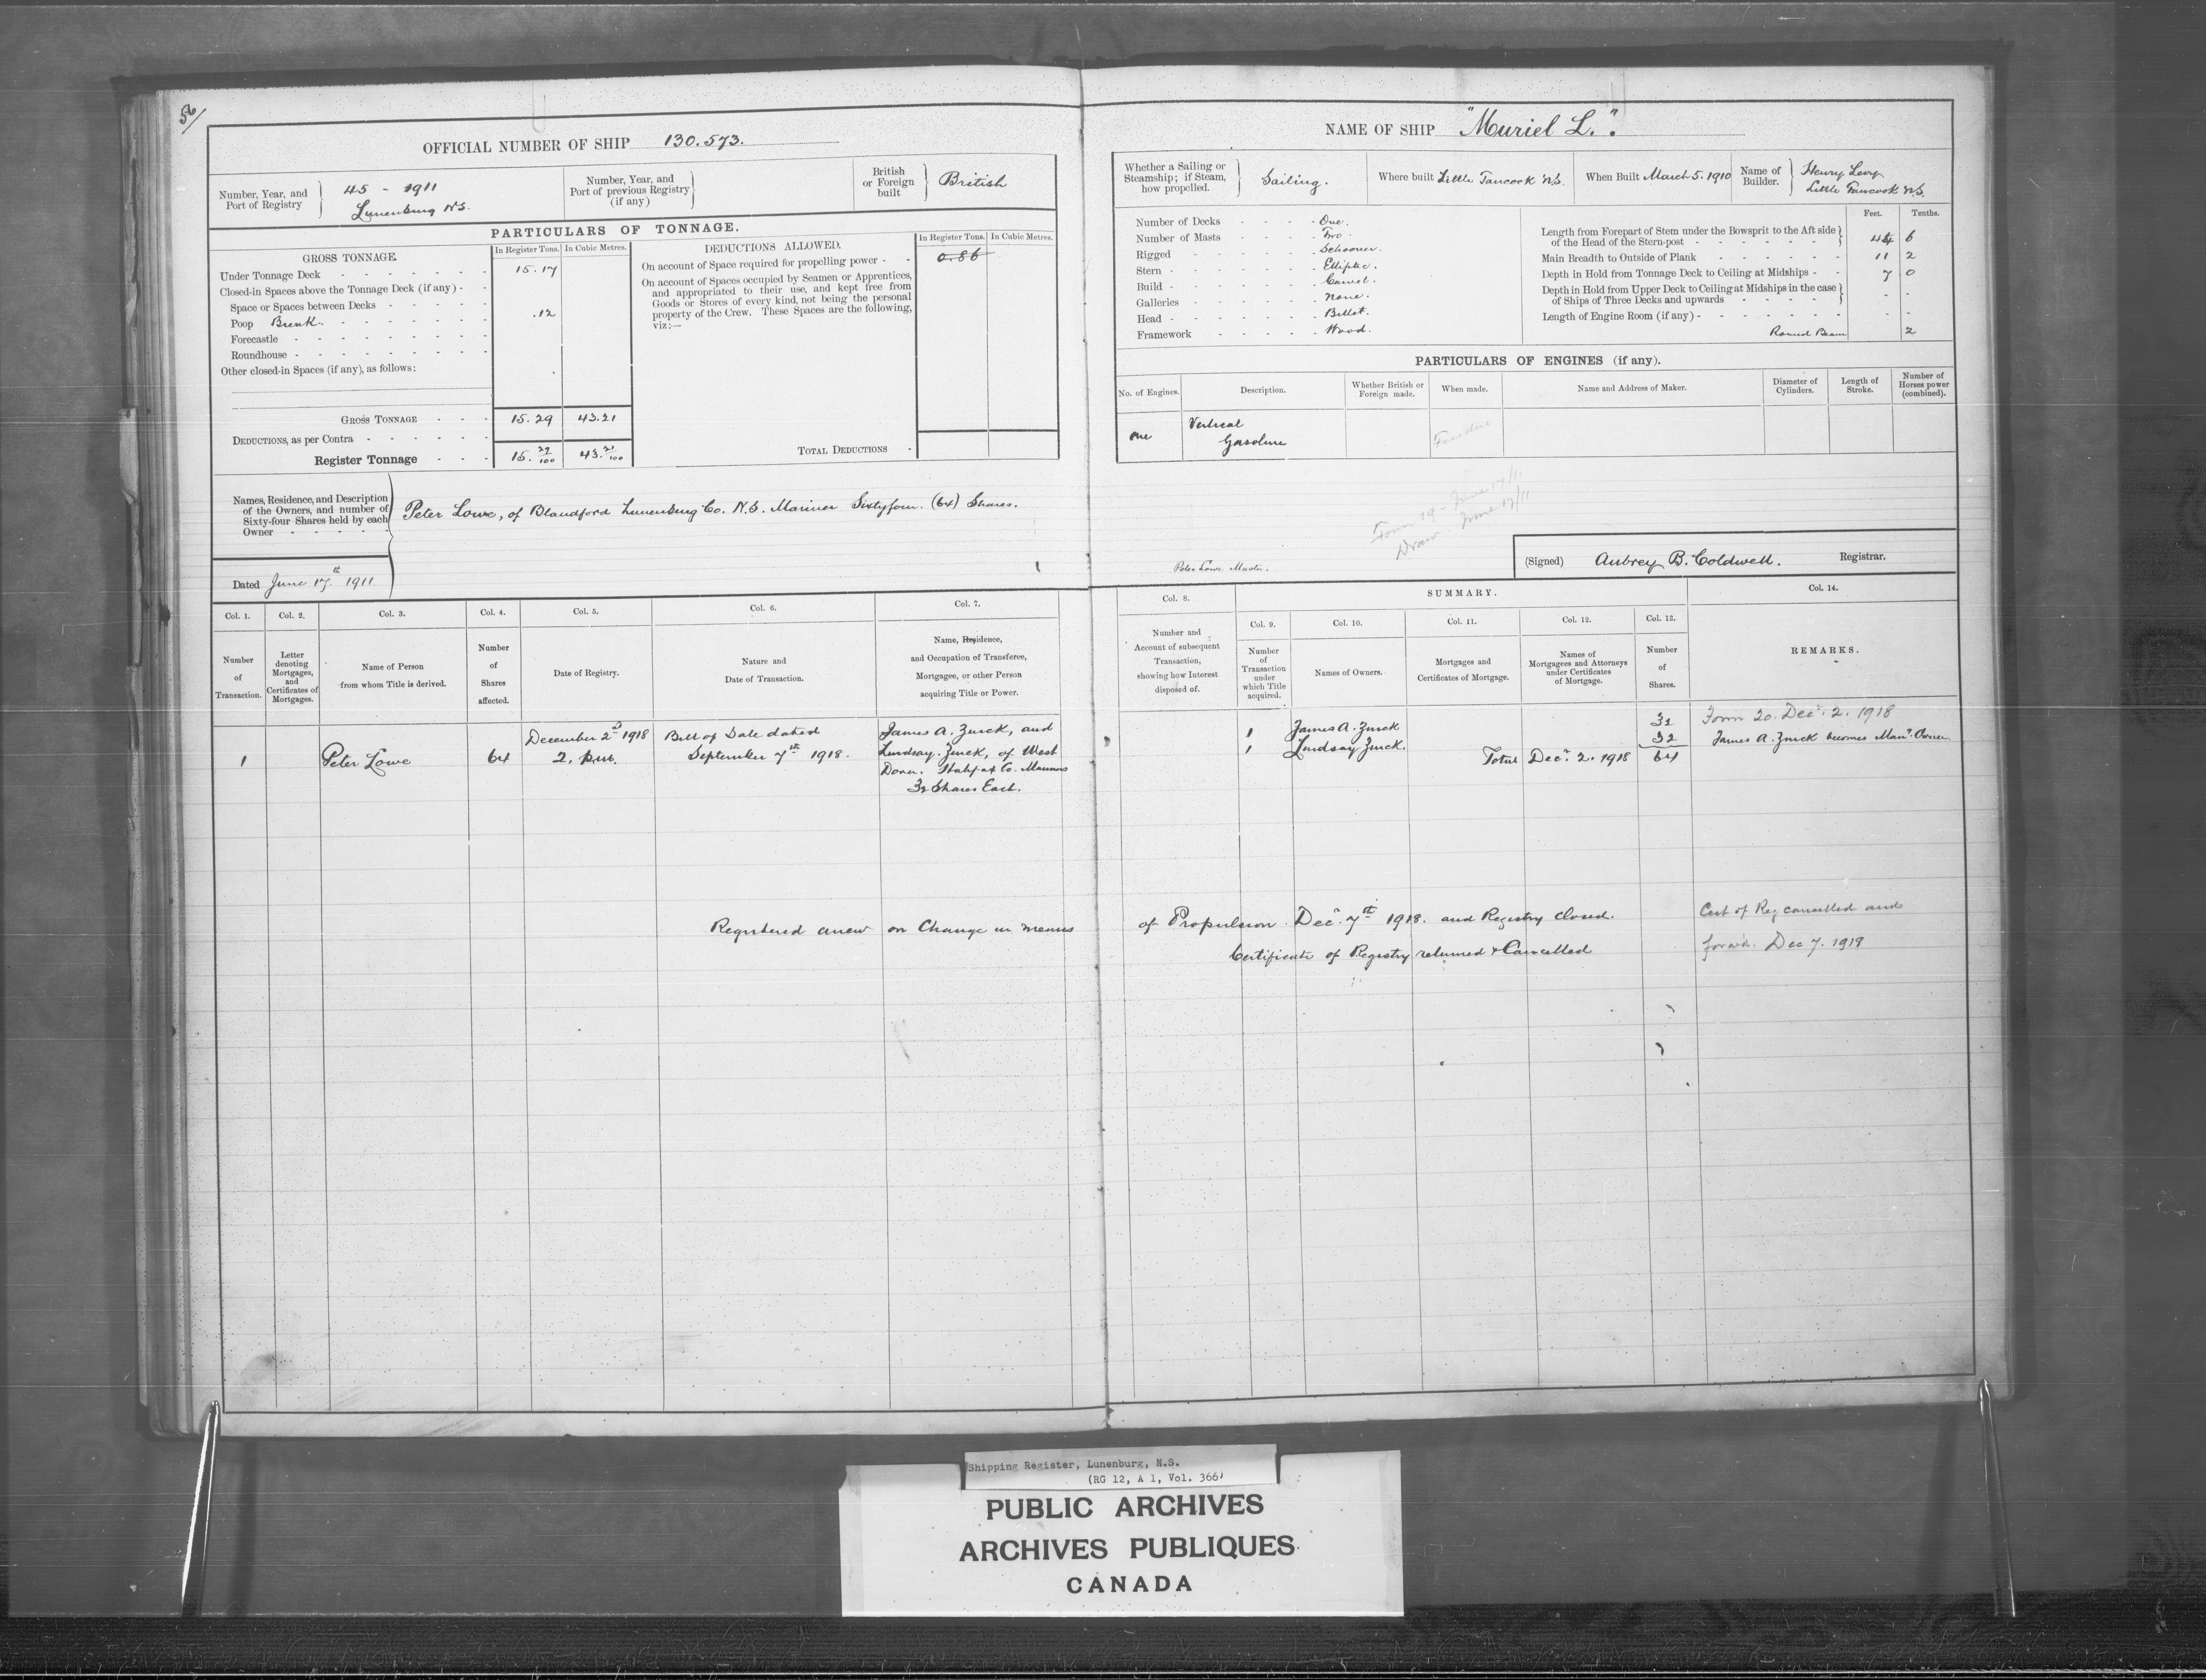 56
OFFICIAL NUMBER OF SHIP 130.573.
Number, Year, and Port of Registry
45 - 1911
Lunenburg N.S.
Number, Year, and Port of previous Registry (if any)
British or Foreign built
British
PARTICULARS OF TONNAGE.
GROSS TONNAGE.
In Register Tons. In Cubic Metres.
Under Tonnage Deck 15.17
Closed-in Spaces above the Tonnage Deck (if any)
Space or Spaces between Decks
Poop Break .12
Forecastle
Roundhouse
Other closed-in Spaces (if any), as follows:
GROSS TONNAGE 15.29 43.21
DEDUCTIONS, as per Contra
Register Tonnage 15. 29/100 43. 21/100
DEDUCTIONS ALLOWED.
In Register Tons. In Cubic Metres.
On account of Space required for propelling power 0.86
On account of Spaces occupied by Seamen or Apprentices,
and appropriated to their use, and kept free from
Goods or Stores of every kind, not being the personal
property of the Crew. These Spaces are the following,
viz:—
TOTAL DEDUCTIONS
Names, Residence, and Description
of the Owners, and number of
Sixty-four Shares held by each
Owner
Peter Lowe, of Blandford Lunenburg Co. N.S. Mariner Sixtyfour. (64) Shares.
Dated June 17th 1911
NAME OF SHIP "Muriel L."
Whether a Sailing or Steamship; if Steam, how propelled.
Sailing.
Where built Little Tancook N.S.
When Built March 5. 1910
Name of Builder.
Henry Levy
Little Tancook N.S.
Number of Decks One.
Number of Masts Two.
Rigged Schooner.
Stern Elliptic.
Build Carvel.
Galleries None.
Head Billet.
Framework Wood.
Feet. Tenths.
Length from Forepart of Stem under the Bowsprit to the Aft side
of the Head of the Stern-post 44 6
Main Breadth to Outside of Plank 11 2
Depth in Hold from Tonnage Deck to Ceiling at Midships 7 0
Depth in Hold from Upper Deck to Ceiling at Midships in the case
of Ships of Three Decks and upwards
Length of Engine Room (if any)
Round Beam 2
PARTICULARS OF ENGINES (if any).
No. of Engines. Description. Whether British or Foreign made. When made. Name and Address of Maker. Diameter of Cylinders. Length of Stroke. Number of Horses power (combined).
One Vertical
Gasoline
Form 19 - June 17/11
Draw June 17/11
Peter Lowe Master.
(Signed) Aubrey B. Coldwell. Registrar.
Col. 1. Col. 2. Col. 3. Col. 4. Col. 5. Col. 6. Col. 7.
Number of Transaction.
Letter denoting Mortgages, and Certificates of Mortgages.
Name of Person from whom Title is derived.
Number of Shares affected.
Date of Registry.
Nature and Date of Transaction.
Name, Residence, and Occupation of Transferee, Mortgagee, or other Person acquiring Title or Power.
Col. 8.
Number and Account of subsequent Transaction, showing how Interest disposed of.
SUMMARY.
Col. 9. Col. 10. Col. 11. Col. 12. Col. 13.
Number of Transaction under which Title acquired.
Names of Owners.
Mortgages and Certificates of Mortgage.
Names of Mortgagees and Attorneys under Certificates of Mortgage.
Number of Shares.
Col. 14.
REMARKS.
1 Peter Lowe 64
December 2d 1918
2. p.m.
Bill of Sale dated
September 7th 1918.
James A. Zinck, and
Lindsay Zinck, of West
Dover. Halifax Co. Mariners
32 Shares Each.
1 James A. Zinck 32
1 Lindsay Zinck. 32
Total Decr. 2. 1918 64
Form 20. Decr. 2. 1918
James A. Zinck becomes Mang. Owner
Registered anew on Change in means of Propulsion Decr. 7th 1918. and Registry closed.
Certificate of Registry returned & Cancelled
Cert of Reg cancelled and
forw'd. Dec 7. 1918
Shipping Register, Lunenburg, N.S.
(RG 12, A 1, Vol. 366)
PUBLIC ARCHIVES
ARCHIVES PUBLIQUES
CANADA